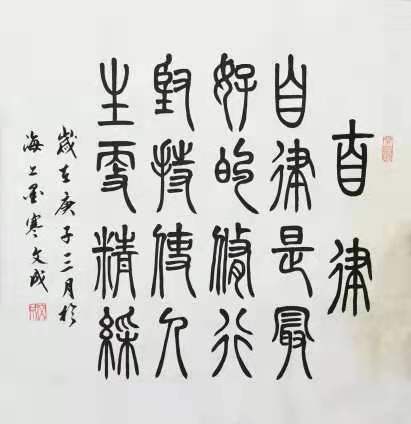 自律
自律是最
好的修行
堅持使人
生更精綵
歲在庚子三月於
海上墨寒文成